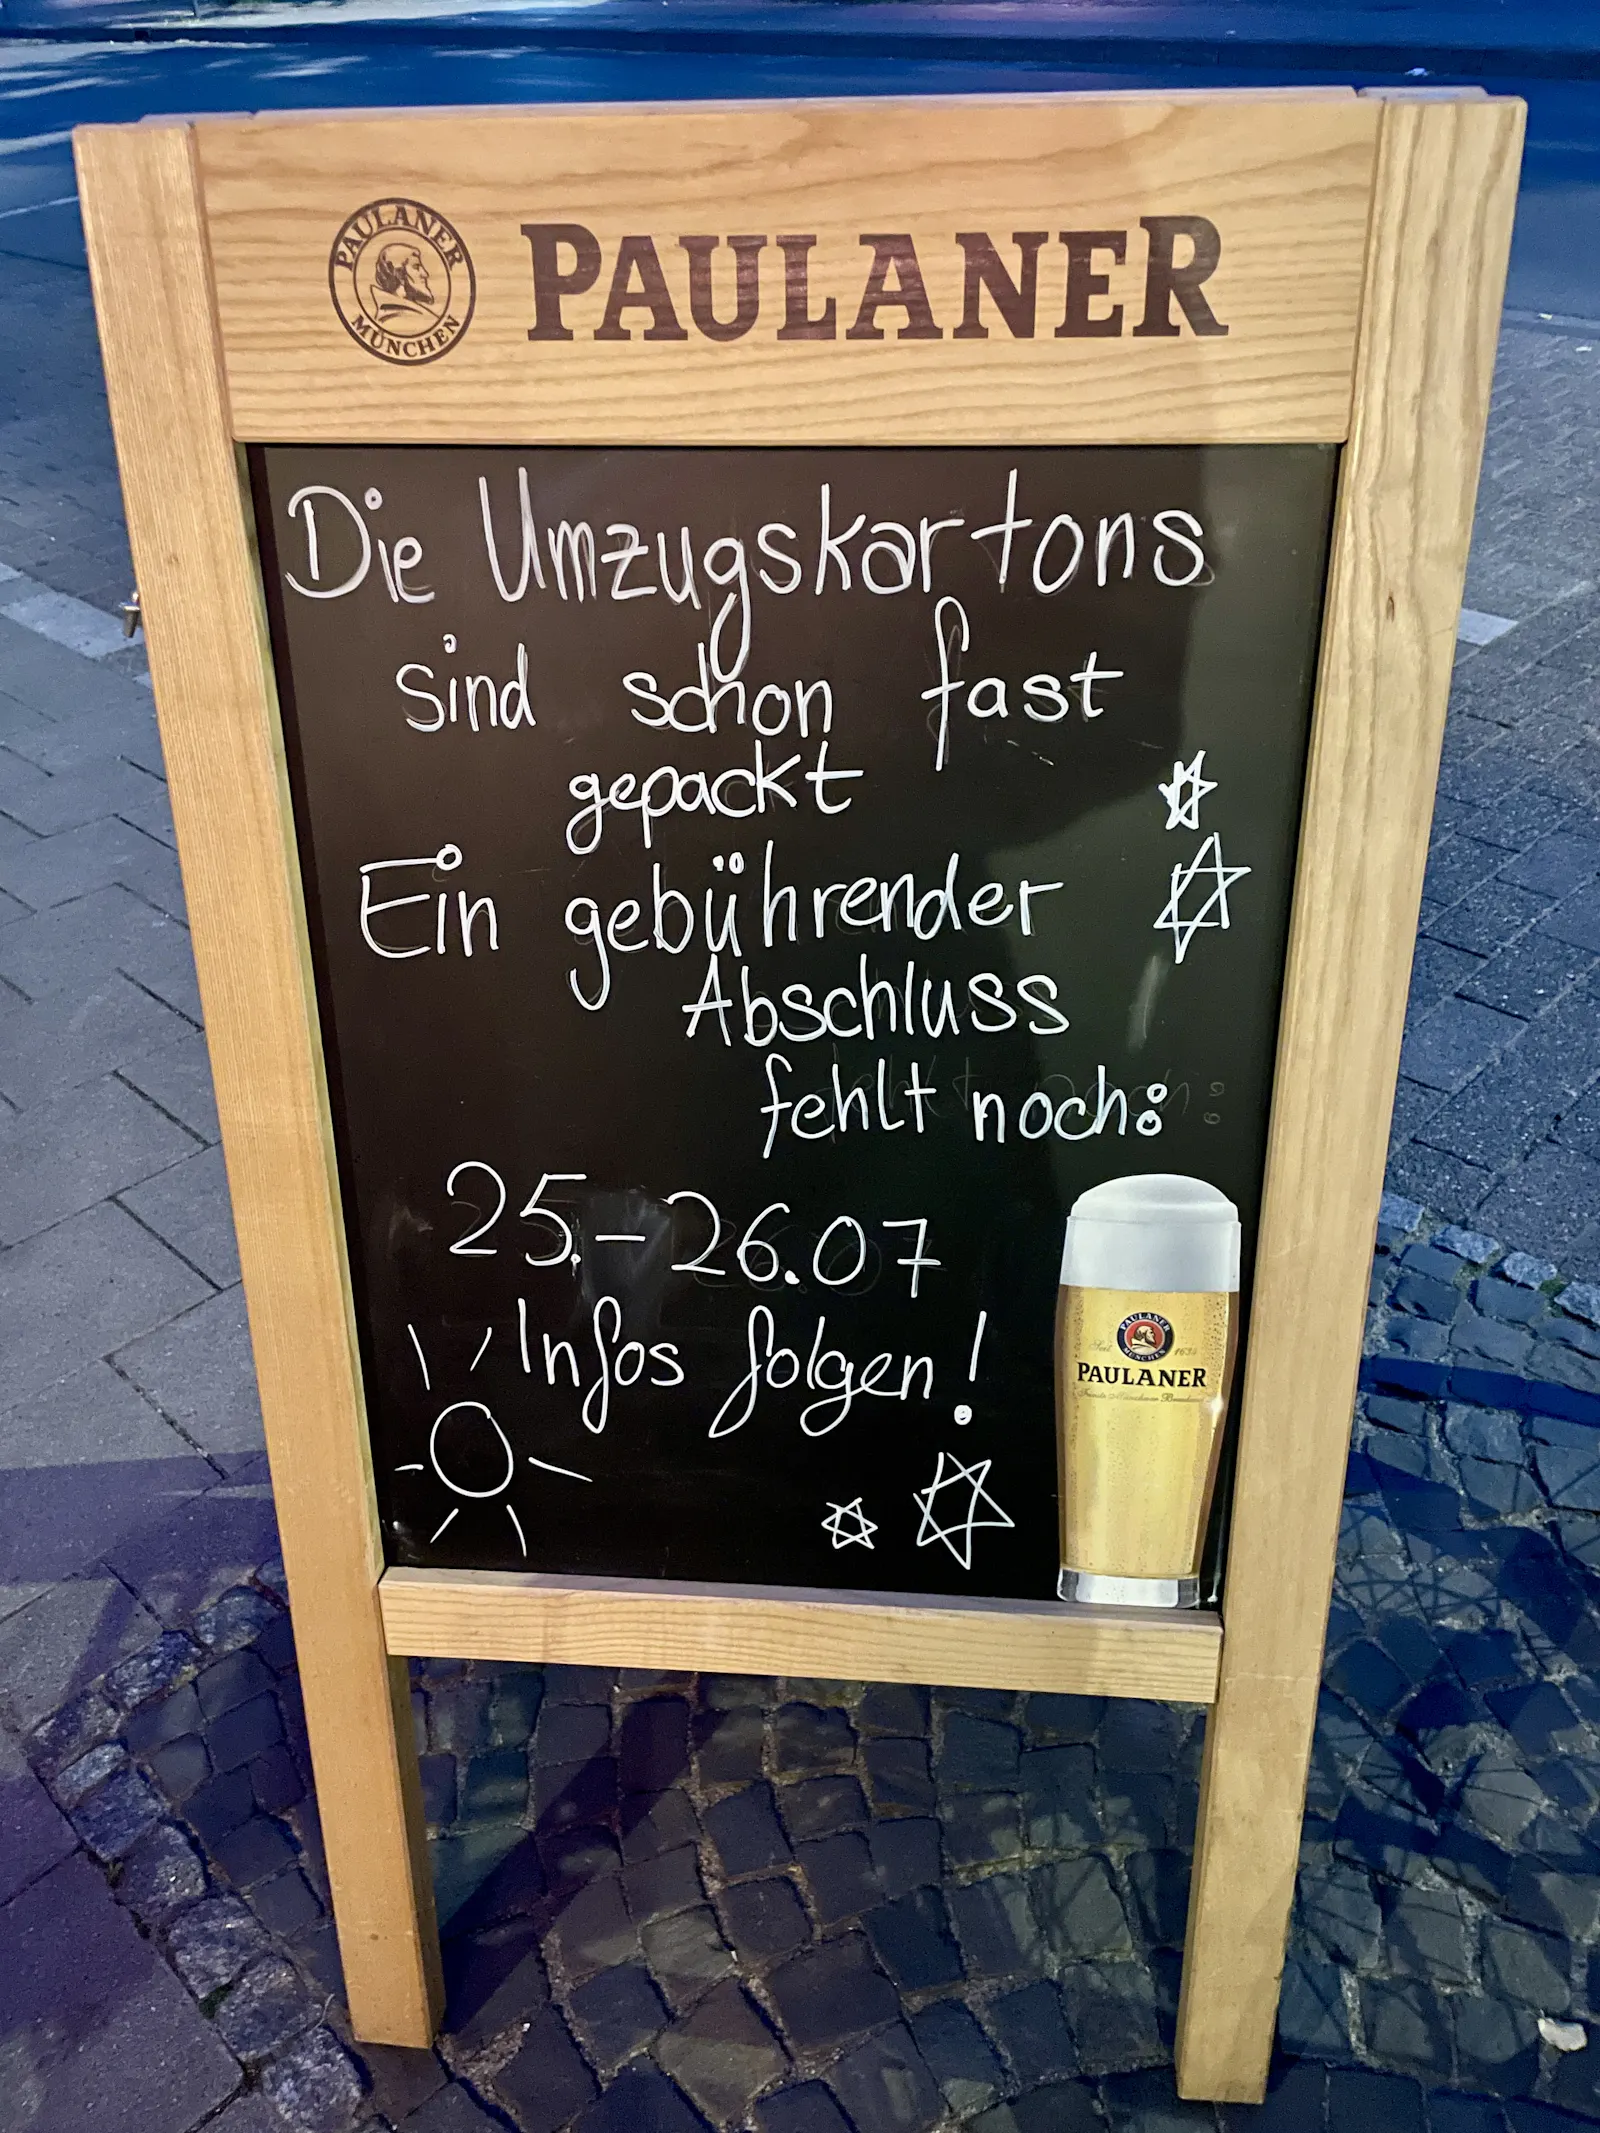 PAULANER
MÜNCHEN
PAULANER
Die Umzugskartons
sind schon fast
gepackt
Ein gebührender
Abschluss
fehlt noch:
25.-26.07
Infos folgen!
PAULANER
MÜNCHEN
Seit 1634
PAULANER